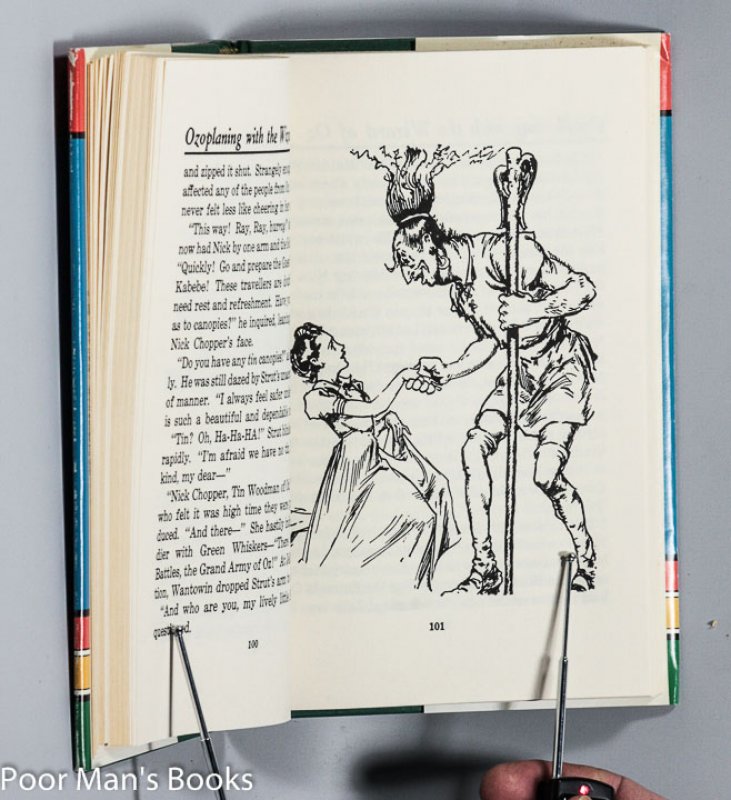 Ozoplaning with the
and zipped it shut. Strangely
affected any of the people from
never felt less like cheering in
"This way! Ray, Ray, hurray!"
now had Nick by one arm and the
"Quickly! Go and prepare the
Kabebe! These travellers are
need rest and refreshment. Have
as to canopies?" he inquired,
Nick Chopper's face.
"Do you have any tin canopies?"
ly. He was still dazed by Strut's
of manner. "I always feel safer
is such a beautiful and
"Tin? Oh, Ha-Ha-HA!" Strut
rapidly. "I'm afraid we have no
kind, my dear—"
"Nick Chopper, Tin Woodman of
who felt it was high time they were
duced. "And there—" She hastily
dier with Green Whiskers—
Battles, the Grand Army of Oz!"
tion, Wantowin dropped Strut's arm
"And who are you, my lively little
100
101
Poor Man's Books